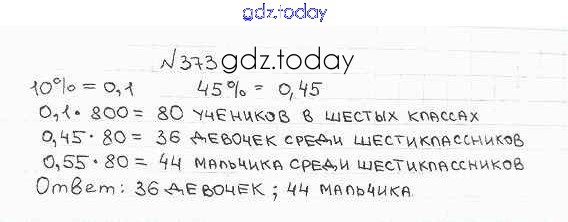 gdz.today
№373 gdz.today
10% = 0,1 45% = 0,45
0,1 · 800 = 80 УЧЕНИКОВ В ШЕСТЫХ КЛАССАХ
0,45 · 80 = 36 ДЕВОЧЕК СРЕДИ ШЕСТИКЛАССНИКОВ
0,55 · 80 = 44 МАЛЬЧИКА СРЕДИ ШЕСТИКЛАССНИКОВ
Ответ: 36 ДЕВОЧЕК; 44 МАЛЬЧИКА.